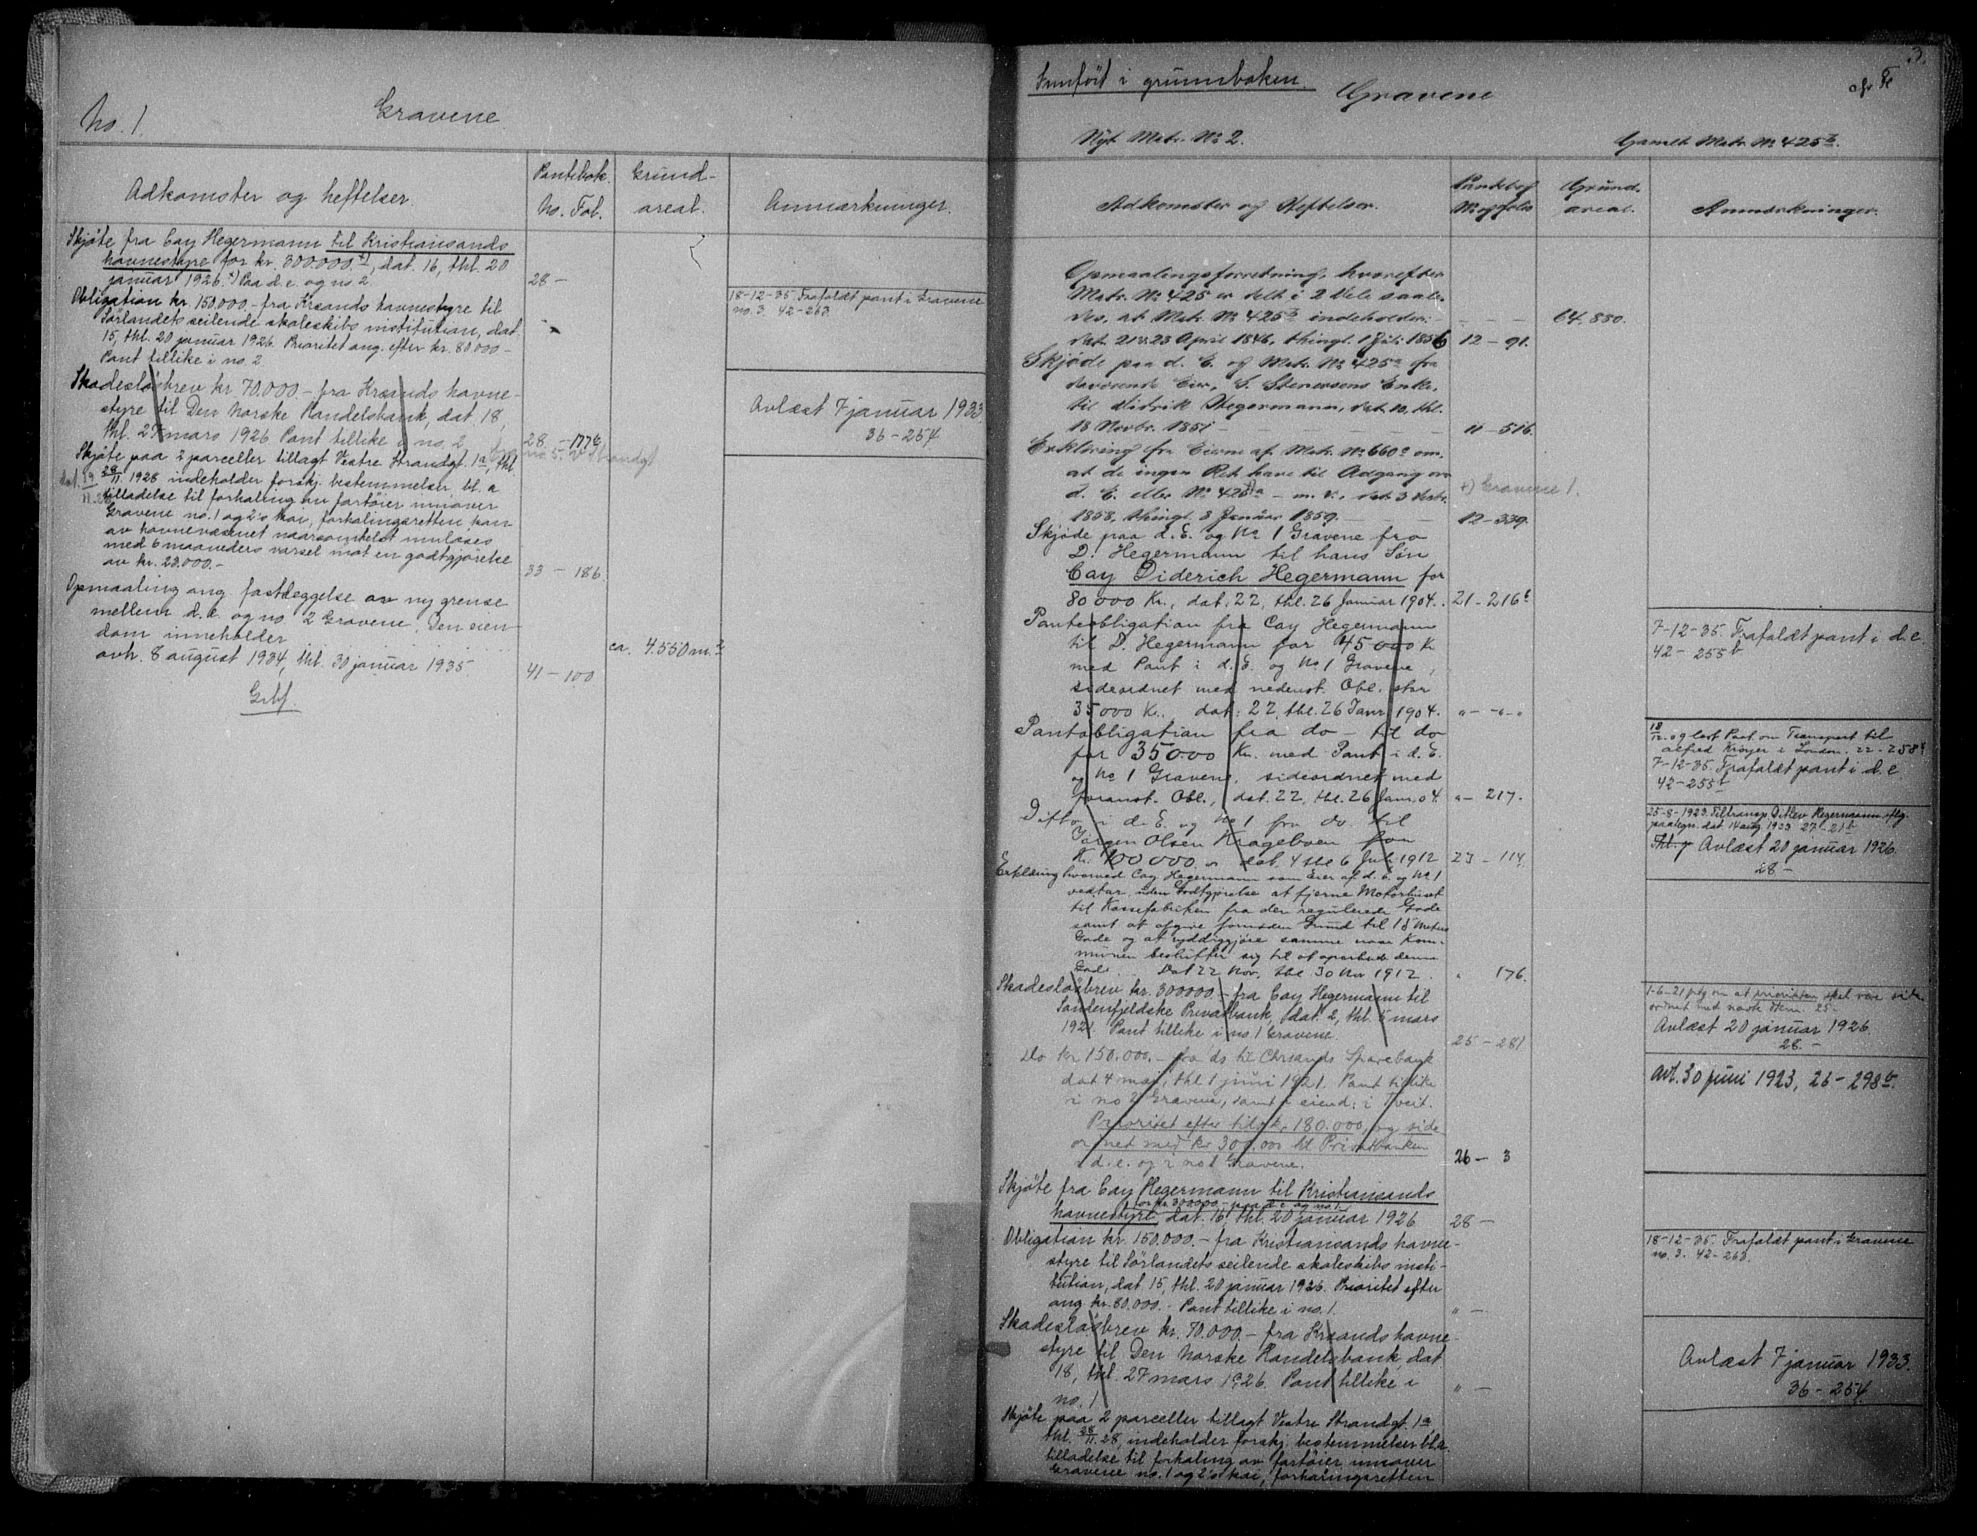 No. 1.
Gravene
Adkomster og heftelser.
Pantebok.
No. Fol.
Grund-
areal.
Anmærkninger.
Skjøte fra Cay Hegermann til Kristiansands
havnestyre for kr. 300.000.-, dat. 16, thl. 20
januar 1926. x) Paa d.e. og no 2
28 -
Obligation kr. 150.000.- fra Krsands havnestyre til
Sørlandets seilende skoleskibs institution, dat.
15, thl. 20 januar 1926. Prioritet ang. efter kr. 80.000-
Pant tillike i no. 2
18-12-35. Frafaldt pant i Gravene
no. 3. 42-263
Skadesløsbrev kr 70.000.- fra Krsands havne-
styre til Den Norske Handelsbank, dat 18,
thl. 27 mars 1926 Pant tillike i no 2
28 - 177b
Avlæst 7 januar 1933
36-254
Skjøte paa 2 parceller tillagt Vestre Strandgt. 1a, thl.
28/11. 1928 indeholder forskj. bestemmelser bl. a
tilladelse til forhaling av fartøier utenover
Gravene no. 1 og 2's kai, forhalingsretten kan
av havnevæsenet naarsomhelst innløses
med 6 maaneders varsel mot en godtgjørelse
av kr. 23.000.-
33 - 186
Opmaaling ang fastleggelse av ny grense
mellem d. e. og no 2 Gravene. Den eien-
dom inneholder
ca. 4.550 m.2
avh. 8 august 1934, thl. 30 januar 1935
41 - 100
3.
Innført i grunnboken.
Gravene
Nyt Matr. No 2.
Gamelt Matr. No 425b.
Adkomster og Heftelser.
Pandebog
No og folio
Grund-
areal.
Anmærkninger.
Opmaalingsforretning, hvorefter
Matr. No 425 er delt i 2 Dele saale-
des, at Matr. No 425b indeholder:
64,830.
dat. 21 & 23 April 1846, thingl. 1 Juli 1856
12 - 91.
Skjøde paa d. E. og Matr. No 425a fra
daværende Eier, S. Stenersens Enke,
til Didrik Hegermann, dat. 10, thl.
18 Novbr. 1851
11 - 516.
Erklæring fra Eierne af Matr. No 660a om,
at de ingen Ret have til Adgang over
d. E. eller No 425a - m. v., dat. 3 Decbr.
+) Gravene 1.
1858, thingl. 3 Januar 1859.
12 - 339.
Skjøde paa d. E. og No 1 Gravene fra
D. Hegermann til hans Søn
Cay Diderich Hegermann for
80000 Kr., dat. 22, thl. 26 Januar 1904.
21 - 216b
Panteobligation fra Cay Hegermann
til D. Hegermann for 45000 Kr
med Pant i d. E. og No 1 Gravene,
sideordnet med nedenst. Obl. stor
35000 Kr. dat. 22, thl. 26 Janr 1904.
" - " - "
7-12-35. Frafaldt pant i d.e.
42-255b
Pantobligation fra do - til do
for 35000 Kr. med Pant i d. E.
og No 1 Gravene, sideordnet med
foranst. Obl., dat. 22, thl. 26 Janr. 04.
" - 217.
18/12. og læst Paat. om Transport til
Alfred Krøyer i London. 22-258b
7-12-35. Frafaldt pant i d. e
42-255b
Ditto i d. E. og No 1 fra do. til
Jørgen Olsen Krageboen for
Kr. 100000. dat. 4 thl 6 Juli 1912
23 - 114.
25-8-1923. Tiltransp. Ditlev Hegermann iflg.
paategn. dat. 14 aug. 1923 27-21b
Avlæst 20 januar 1926
28-
Erklæring hvorved Cay Hegermann som Eier af d. E. og No 1
vedtar uden Godtgjørelse at fjerne Motorhuset
til Kassefabriken fra den regulerede Gade
samt at afgive fornøden Grund til 15 Meters
Gade og at ryddiggjøre samme naar Kom-
munen beslutter sig til at oparbeide denne
Gade. Dat 22 Nov, thl 30 Nov 1912.
" 176.
Skadesløsbrev kr. 300000.- fra Cay Hegermann til
Søndenfjeldske Privatbank, dat. 2, thl. 5 mars
1921. Pant tillike i no. 1 Gravene
25 - 281
1-6-21 ptg om at prioriteten skal være side
ordnet med næste item. 25-
Avlæst 20 januar 1926.
28.-
Do Kr 150.000.- fra do til Chrsands Sparebank
dat 4 mai, thl 1 juni 1921. Pant tillike
i no 1 Gravene, samt i eiend. i Tveit.
Prioritet efter tils. kr 180.000, og side
ordnet med kr 300.000 til Privatbanken
i d. e. og i no 1 Gravene.
26 - 3
Avl. 30 juni 1923, 26-298b.
Skjøte fra Cay Hegermann til Kristiansands
for kr 300000.- paa d e og no 1.
havnestyre, dat. 16 thl. 20 januar 1926
28 -
Obligation kr. 150.000.- fra Kristiansands havne-
styre til Sørlandets seilende skoleskibs insti-
tution, dat. 15, thl. 20 januar 1926. Prioritet efter
ang. kr. 80.000.- Pant tillike i no. 1.
" -
18-12-35. Frafaldt pant i Gravene
no. 3. 42-263.
Skadesløsbrev kr. 70.000.- fra Krsands havne-
styre til Den Norske Handelsbank, dat
18, thl. 27 mars 1926. Pant tillike i
no. 1
" -
Avlæst 7 januar 1933.
36-254
Skjøte paa 2 parceller tillagt Vestre Strandgt. 1a
thl. 28/11. 28, indeholder forskj. bestemmelser bl.a.
tilladelse til forhaling av fartøier utenover
Gravene no. 1 og 2's kai, forhalingsretten